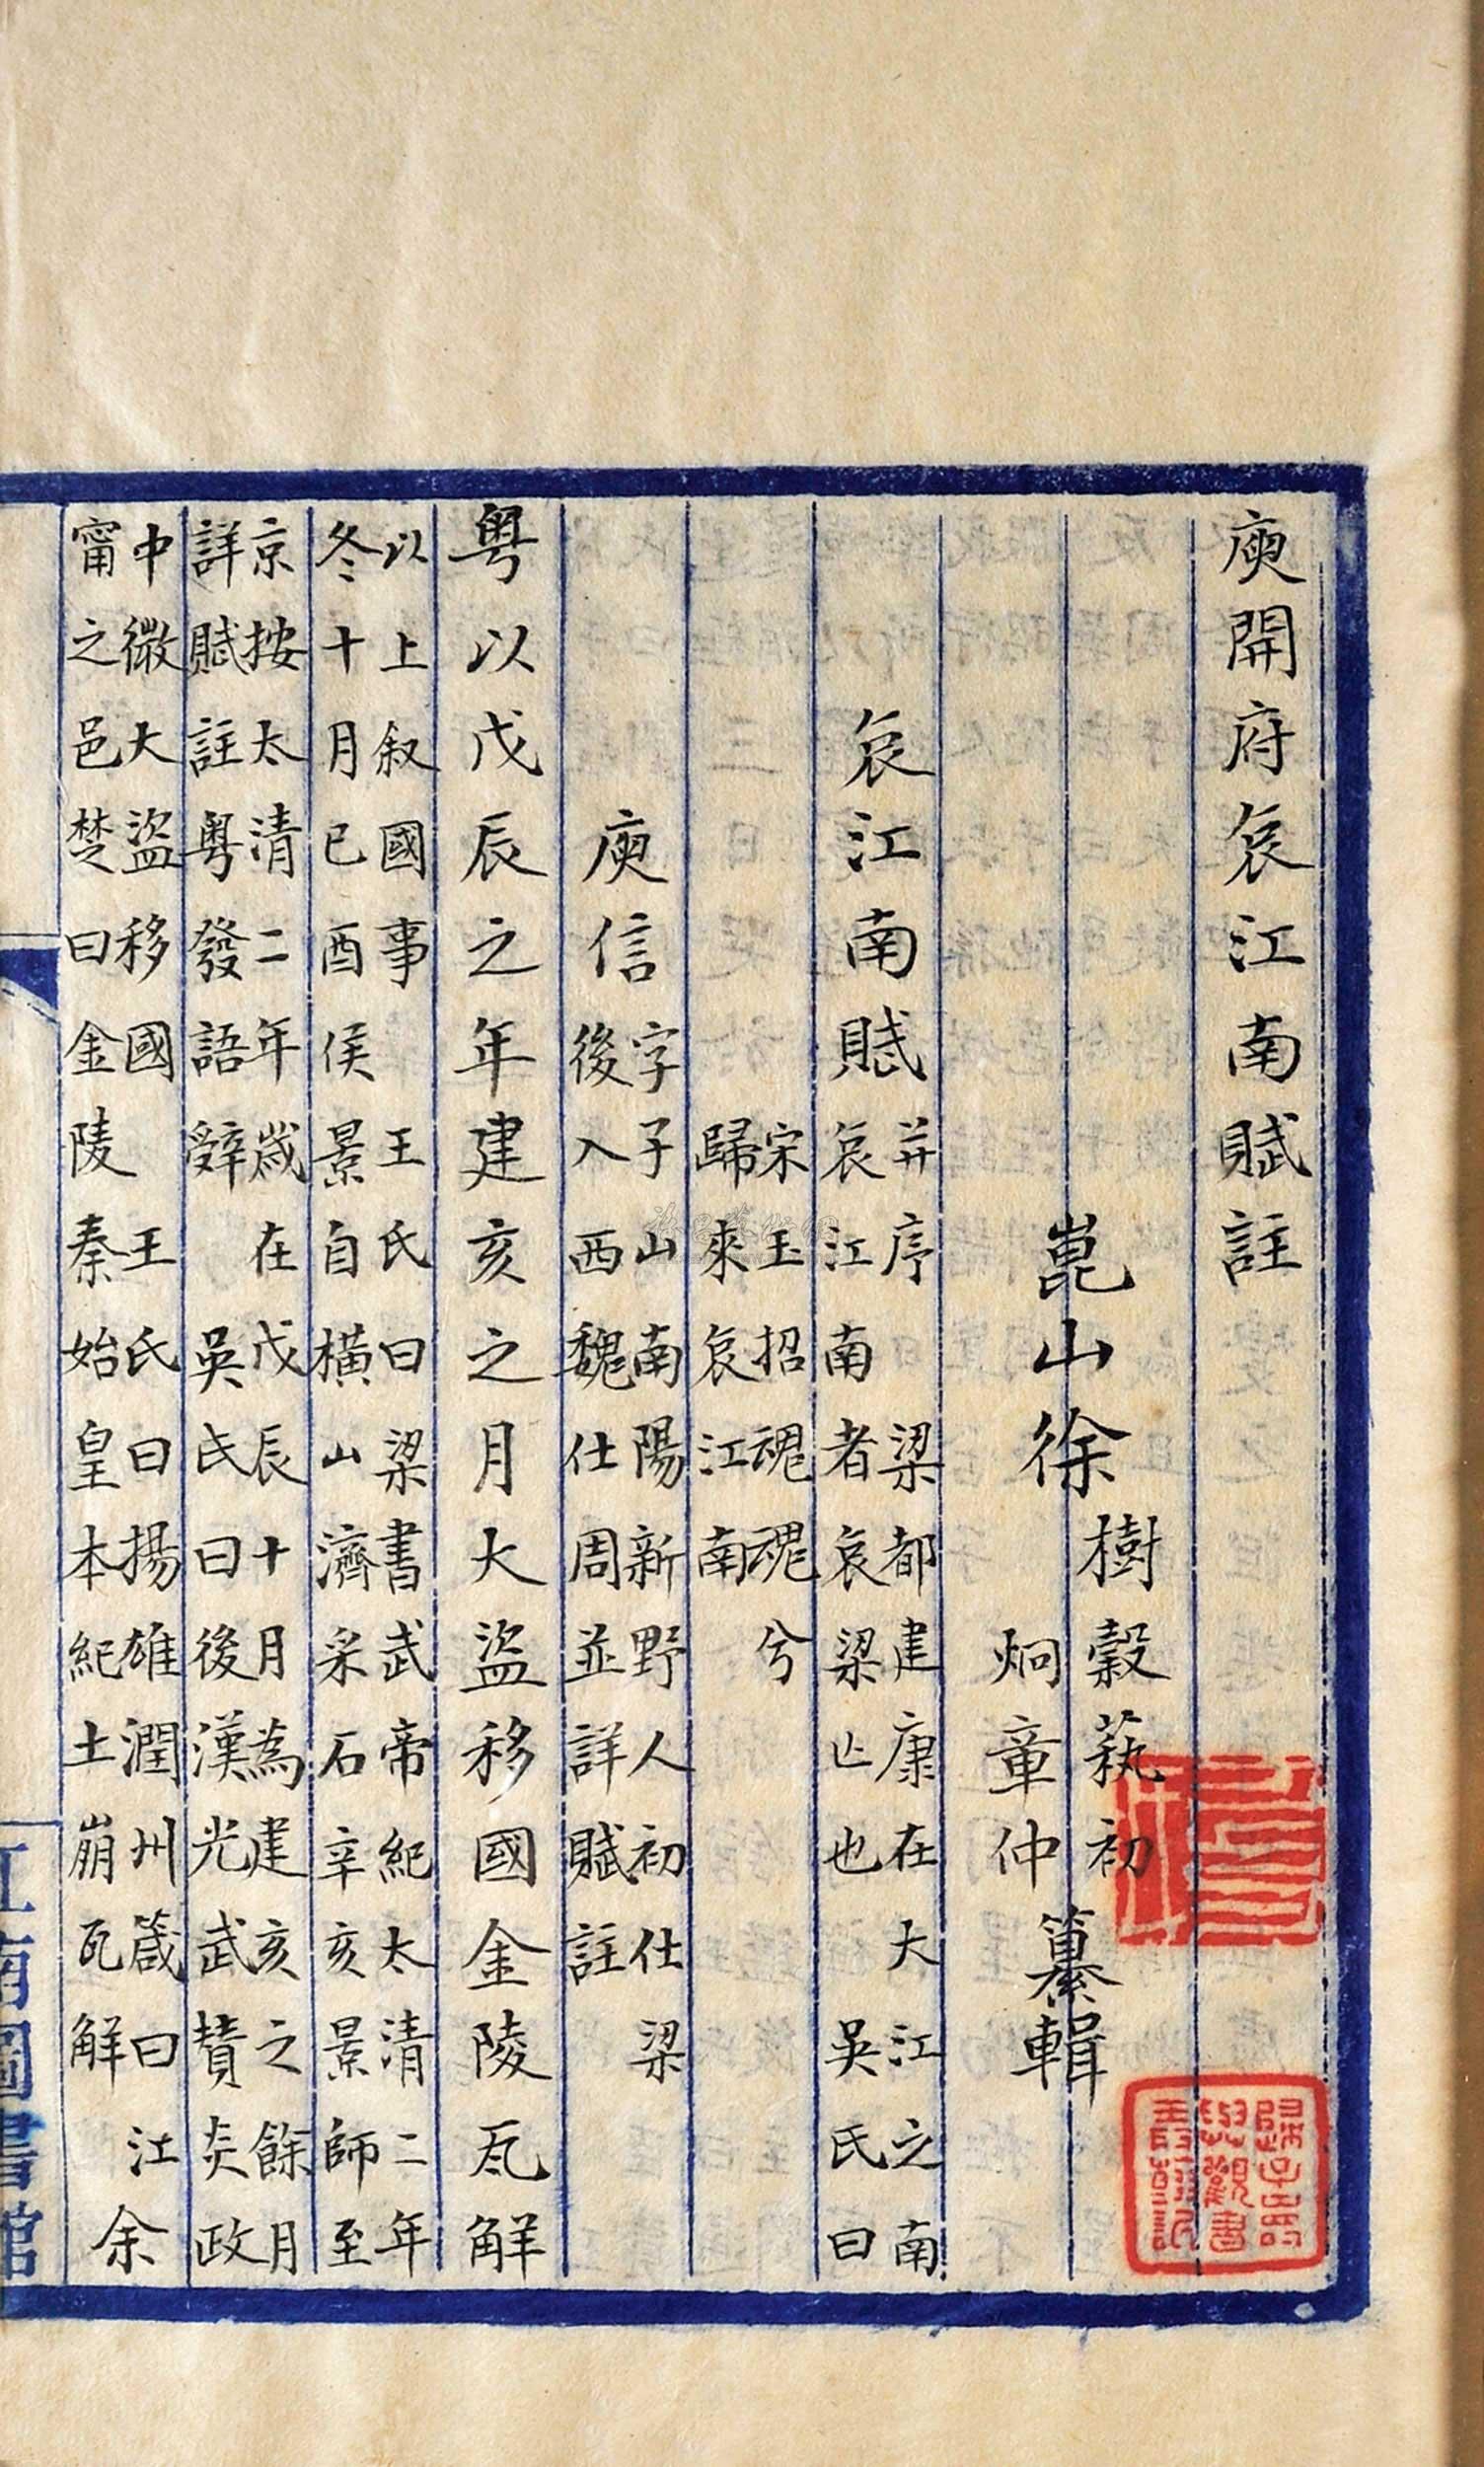 庾開府哀江南賦註
崑山徐
樹穀蓺初
炯章仲
纂輯
哀江南賦
并序 梁都建康在大江之南
哀江南者哀梁亾也 吳氏曰
宋玉招魂魂兮
歸來哀江南
庾信
字子山南陽新野人初仕梁
後入西魏仕周並詳賦註
粤以戊辰之年建亥之月大盜移國金陵瓦解
以上叙國事 王氏曰梁書武帝紀太清二年
冬十月已酉侯景自橫山濟采石辛亥景師至
京按太清二年歲在戊辰十月為建亥之餘月
詳賦註粤發語辭 吳氏曰後漢光武賛炎政
中微大盜移國 王氏曰揚雄潤州箴曰江
甯之邑楚曰金陵秦始皇本紀土崩瓦解
余
江南圖書館